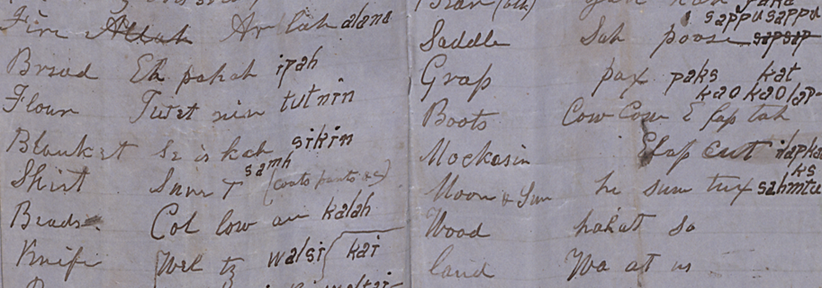 Fire Allah Ar lah alana
Bread Eh pahah ipah
Flour Twet nin tutnin
Blanket Se is kah sikin
Shirt Sum T samh (coats pants &c)
Beads Col low an kalah
Knife Wel tz walsi kai
sappusappu
Saddle Sah poose sapsap
Grass pax paks kat
kao kao lap
Boots Cow Cow E lap tah
Mockasin Elap cut ilapka
ks
Moon & Sun he sum tux sahmtu
Wood hahat so
land Wa at us